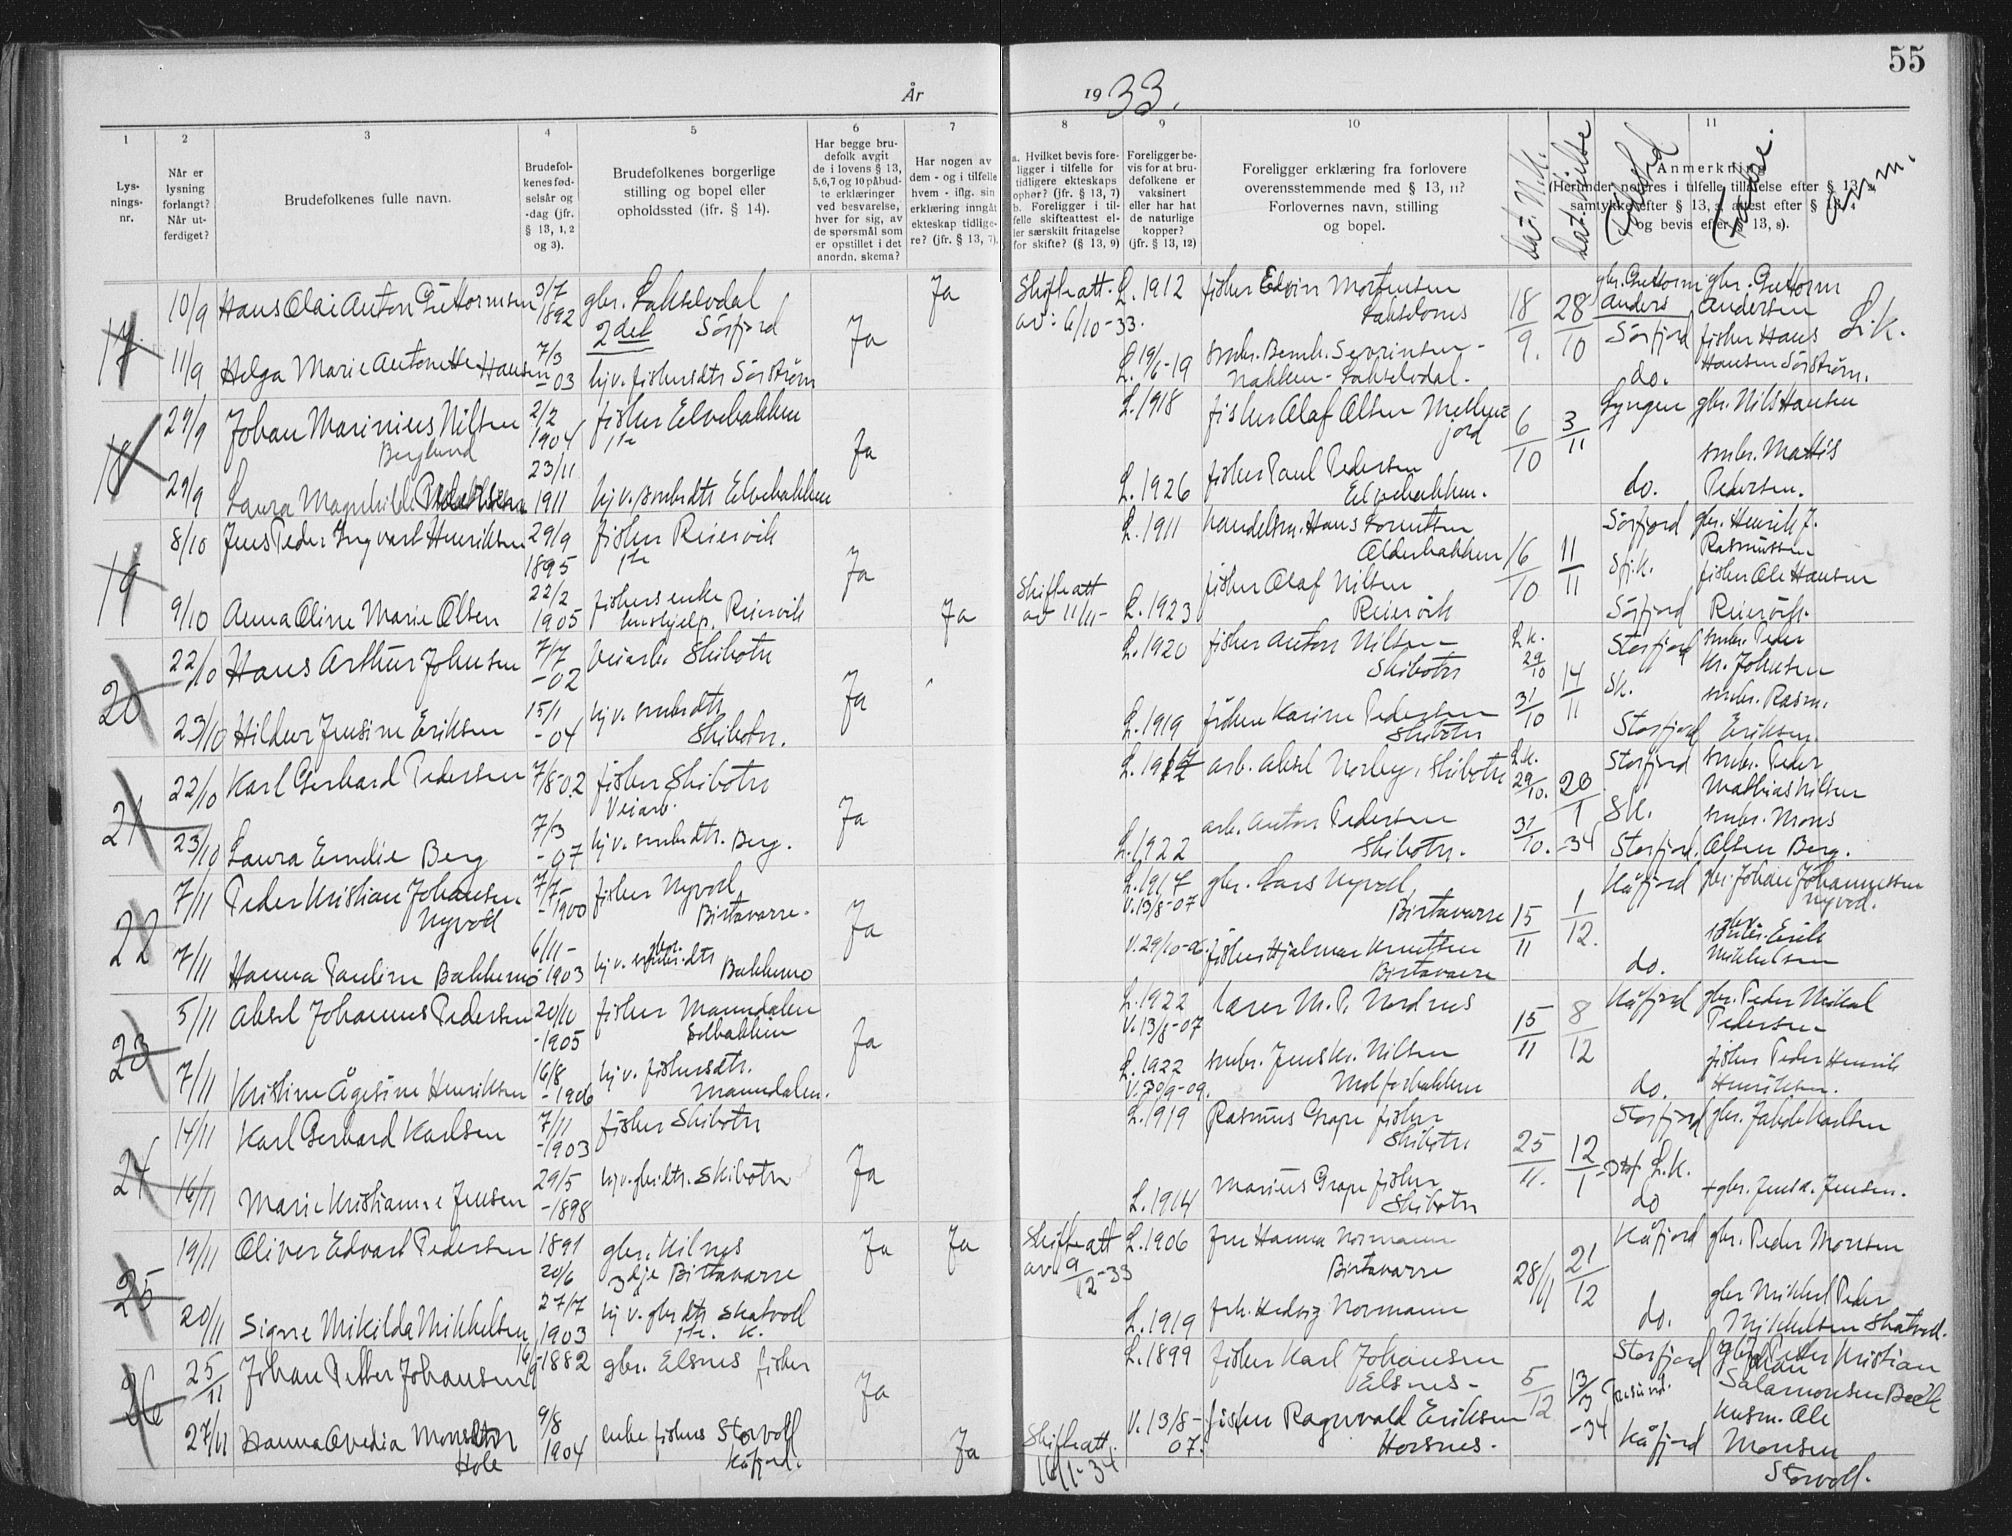 55
År
19 33.
1
2
3
4
5
6
7
8
9
10
11
Lys-
nings-
nr.
Når er
lysning
forlangt?
Når ut-
ferdiget?
Brudefolkenes fulle navn.
Brudefol-
kenes fød-
selsår og
-dag (jfr.
§ 13, 1, 2
og 3).
Brudefolkenes borgerlige
stilling og bopel eller
opholdssted (jfr. § 14).
Har begge bru-
defolk avgit
de i lovens § 13,
5, 6, 7 og 10 påbud-
te erklæringer
ved besvarelse,
hver for sig, av
de spørsmål som
er opstillet i det
anordn. skema?
Har nogen av
dem - og i tilfelle
hvem - iflg. sin
erklæring inngåt
ekteskap tidlige-
re? (jfr. § 13, 7).
a. Hvilket bevis fore-
ligger i tilfelle for
tidligere ekteskaps
ophør? (jfr. § 13, 7)
b. Foreligger i til-
felle skifteattest el-
ler særskilt fritagelse
for skifte? (§ 13, 9)
Foreligger be-
vis for at bru-
defolkene er
vaksinert
eller har hat
de naturlige
kopper?
(jfr. § 13, 12)
Foreligger erklæring fra forlovere
overensstemmende med § 13, 11?
Forlovernes navn, stilling
og bopel.
Anmerkning
(Herunder noteres i tilfelle tillatelse efter § 13, 2,
samtykke efter § 13, 3, attest efter § 13, 4
og bevis efter § 13, 8).
Fødested
anm.
17
10/9 Hans Olai Anton Guttormsen 3/7 1892 gbr. Lakselvdal
2det Sörfjord Ja Ja
Skifteatt. av: 6/10-33. L. 1912 fisker Edvin Mortensen
18/9. 28/10 gbr. Guttorm Andersen
Sörfjord L.k.
11/9 Helga Marie Antonette Hansen 7/3 -03 hjv. fiskersdtr Sörström
L. 19/6-19 smbr. Bernh. Severinsen -
Nakken - Lakselvdal.
do. fisker Hans
Hansen Sörström.
18
29/9 Johan Marinius Nilsen
Berglund 2/2 1904 fisker Elvebakken
Ja L. 1918 fisker Olaf Olsen
6/10 3/11 Lyngen gbr. Nils Hansen
29/9 Laura Magnhild 23/11 1911 hjv. smbrdtr Elvebakken
L. 1926 fisker Paul Pedersen
Elvebakken.
do. smbr. Mattis
Pedersen.
19
8/10 Jens Peder Ingvart Henriksen 29/9 1895 fisker Reiervik
Ja L. 1911 handelsm. Hans
Olderbakken 16/10 11/11 Sörfjord gbr. Henrik J.
Rasmussen
9/10 Anna Oline Marie Olsen 22/2 1905 fiskers enke
Reiervik Ja
Skifteatt av 11/11- L. 1923 fisker Olaf Nilsen
Reiervik
Sörfjord fisker Ole Hansen
Reiervik.
20
22/10 Hans Arthur Johnsen 7/7 -02 veiarb. Skibotn
Ja L. 1920 fisker Anton Nilsen
Skibotn L.k. 29/10 14/11 Storfjord smbr. Peder
Kr. Johnsen
23/10 Hildur Jensine Eriksen 15/1 -04 hjv. smbrdtr
Skibotn.
L. 1919 Karine Pedersen
Skibotn 31/10 Sk.
Storfjord smbr. Rasm.
Eriksen.
21
22/10 Karl Gerhard Pedersen 7/8-02 fisker Skibotn
Veiarb. Ja
arb. Aksel Norby, Skibotn L.k. 29/10. 20/1 -34 Storfjord smbr. Peder
Mathias Nilsen
23/10 Laura Emilie Berg 7/3 -07 hjv. smbrdtr. Berg.
L. 1922 arb. Anton Pedersen
Skibotn. 31/10. Sk.
Storfjord. smbr. Mons
Olsen Berg.
22
7/11 Peder Kristian Johansen
Nyvoll 7/7- -1900 fisker Nyvoll,
Birtavarre. Ja
L. 1917 V. 13/8-07 gbr. Lars Nyvoll,
Birtavarre 15/11 1/12. Kåfjord gbr. Johan Johannessen
Nyvoll.
7/11 Hanna Pauline Bakkemo 6/11- -1903 hjv. gbr.dtr Bakkemo
V. 29/10-06. fisker Hjalmar Knutsen
Birtavarre
do. Erik
Mikkelsen
23
5/11 Aksel Johannes Pedersen 20/10 -1905 fisker Manndalen
Solbakken Ja
L. 1922 V. 13/8-07 lærer M. P. Nordnes
15/11 8/12 Kåfjord gbr. Peder Mikal
Pedersen
7/11 Kristine Ågesine Henriksen 16/8 -1906 hjv. fiskersdtr.
Manndalen.
L. 1922 V. 30/9-09. smbr. Jens Kr. Nilsen
do. fisker Peder Henrik
Henriksen.
24
14/11 Karl Gerhard Karlsen 7/11 -1903 fisker Skibotn
Ja L. 1919 Rasmus Grape fisker
Skibotn 25/11. 12/1 -34 L.k. Storfjord gbr. Karlsen
16/11 Marie Kristianne Jensen 29/5 -1898 hjv. gbr.dtr. Skibotn
L. 1914 Marius Grape fisker
Skibotn
do + gbr. Jens A. Jensen.
25
19/11 Oliver Edvart Pedersen 1891 20/6 gbr. Kilnes
3dje Birtavarre Ja Ja
Skifteatt av 9/12-33 L. 1906 fru Hanna Normann
Birtavarre 28/11 21/12 Kåfjord gbr. Peder Monsen
20/11 Signe Mikilda Mikkelsen 27/7 1903 hjv. gbrdtr Skatvoll
1ste. K.
L. 1919 frk. Hedvig Normann
do. gbr Mikkel Peder
Mikkelsen Skatvoll.
26
25/11 Johan Petter Johansen -1882 gbr. Elsnes fisker
Ja L. 1899 fisker Karl Johansen
Elsnes- 5/12 13/3 -34 Storfjord Kristian
Salamonsen
27/11 Hanna Ovedia Monsdtr
Hole 9/8 1904 enke fiskers Storvoll
Kåfjord. Ja
Skifteatt. 16/1-34 V. 13/8-07. fisker Ragnvald Eriksen
Horsnes.
Kåfjord husm. Ole
Monsen
Storvoll.